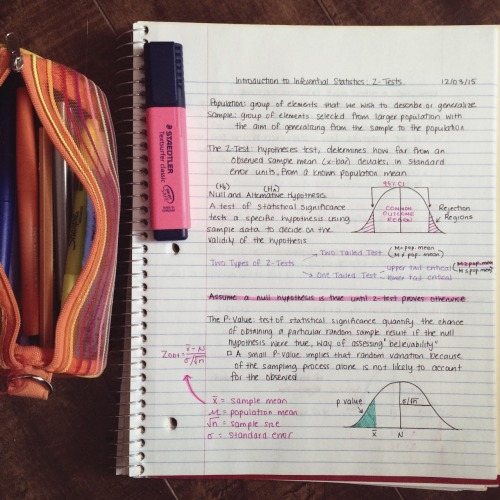 Introduction to Inferential Statistics: Z-Tests 12/03/15
Population: group of elements that we wish to describe or generalize
Sample: group of elements selected from larger population with
the aim of generalizing from the sample to the population
The Z-Test: hypotheses test, determines how far from an
observed sample mean (x-bar) deviates, in standard
error units, from a known population mean.
(H₀) (Hₐ)
Null and Alternative Hypothesis
A test of Statistical Significance
tests a specific hypothesis using
sample data to decide on the
validity of the hypothesis
95% CI
COMMON
OUTCOME
REGION
Rejection
Regions
Two Types of Z-Tests
Two Tailed Test (M = pop. mean
M ≠ pop. mean)
One Tailed Test
upper tail critical
lower tail critical
Assume a null hypothesis is true until z-test proves otherwise
The P-Value: test of statistical significance quantify the chance
of obtaining a particular random sample result if the null
hypothesis were true, way of assessing "believability"
□ A small P-value implies that random variation because
of the sampling process alone is not likely to account
for the observed
x̄ = sample mean
μ = population mean
√n = sample size
σ = standard error
p value
σ/√n
x̄
STAEDTLER
Textsurfer classic